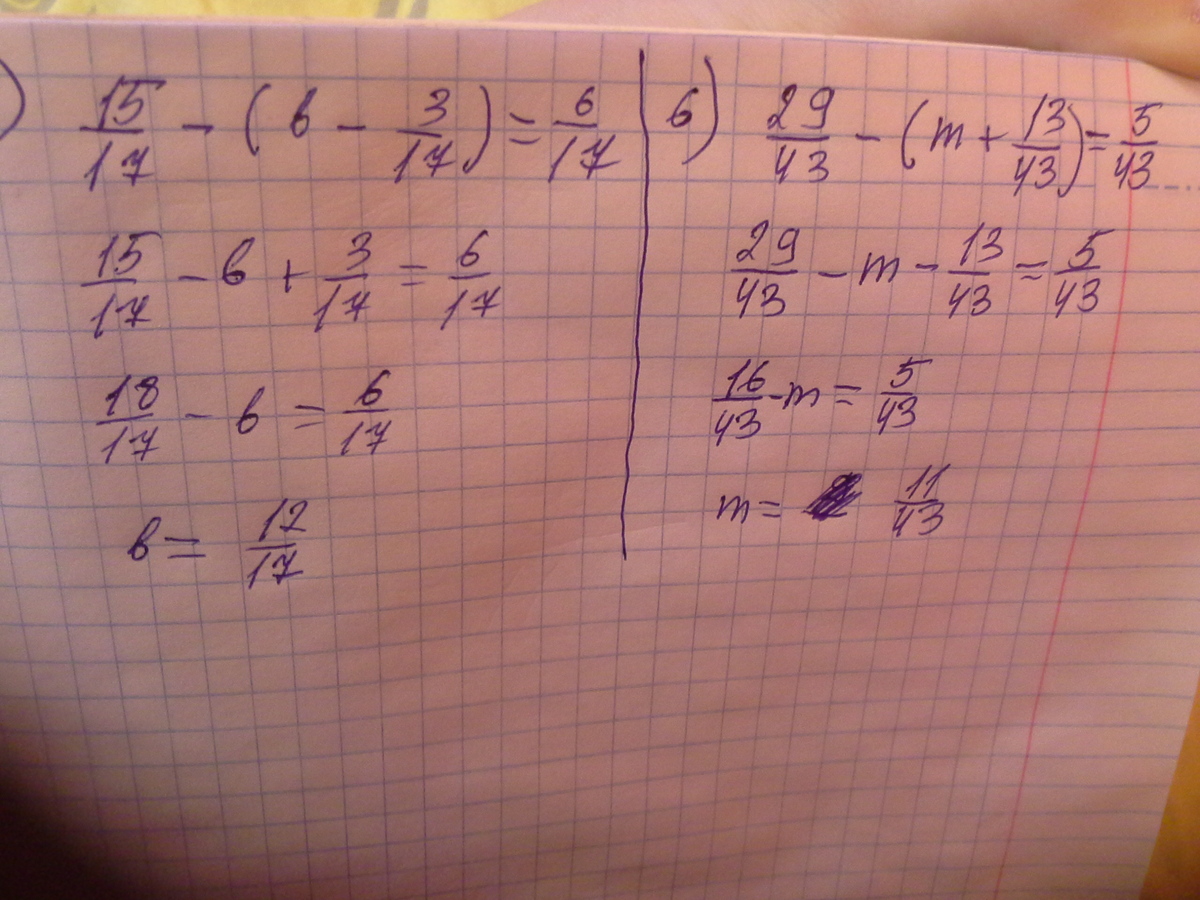 ) 15/17 - (в - 3/17) = 6/17
15/17 - в + 3/17 = 6/17
18/17 - в = 6/17
в = 12/17
6) 29/43 - (m + 13/43) = 5/43
29/43 - m - 13/43 = 5/43
16/43 - m = 5/43
m = 11/43